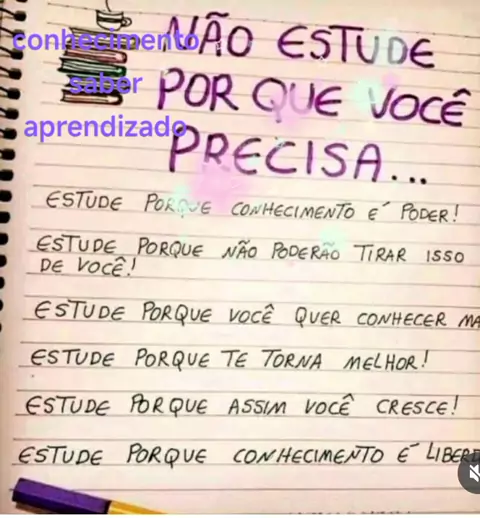 conhecimento
saber
aprendizado
NÃO ESTUDE
POR QUE VOCÊ
PRECISA...
ESTUDE PORQUE CONHECIMENTO É PODER!
ESTUDE PORQUE NÃO PODERÃO TIRAR ISSO
DE VOCÊ!
ESTUDE PORQUE VOCÊ QUER CONHECER
ESTUDE PORQUE TE TORNA MELHOR!
ESTUDE PORQUE ASSIM VOCÊ CRESCE!
ESTUDE PORQUE CONHECIMENTO É